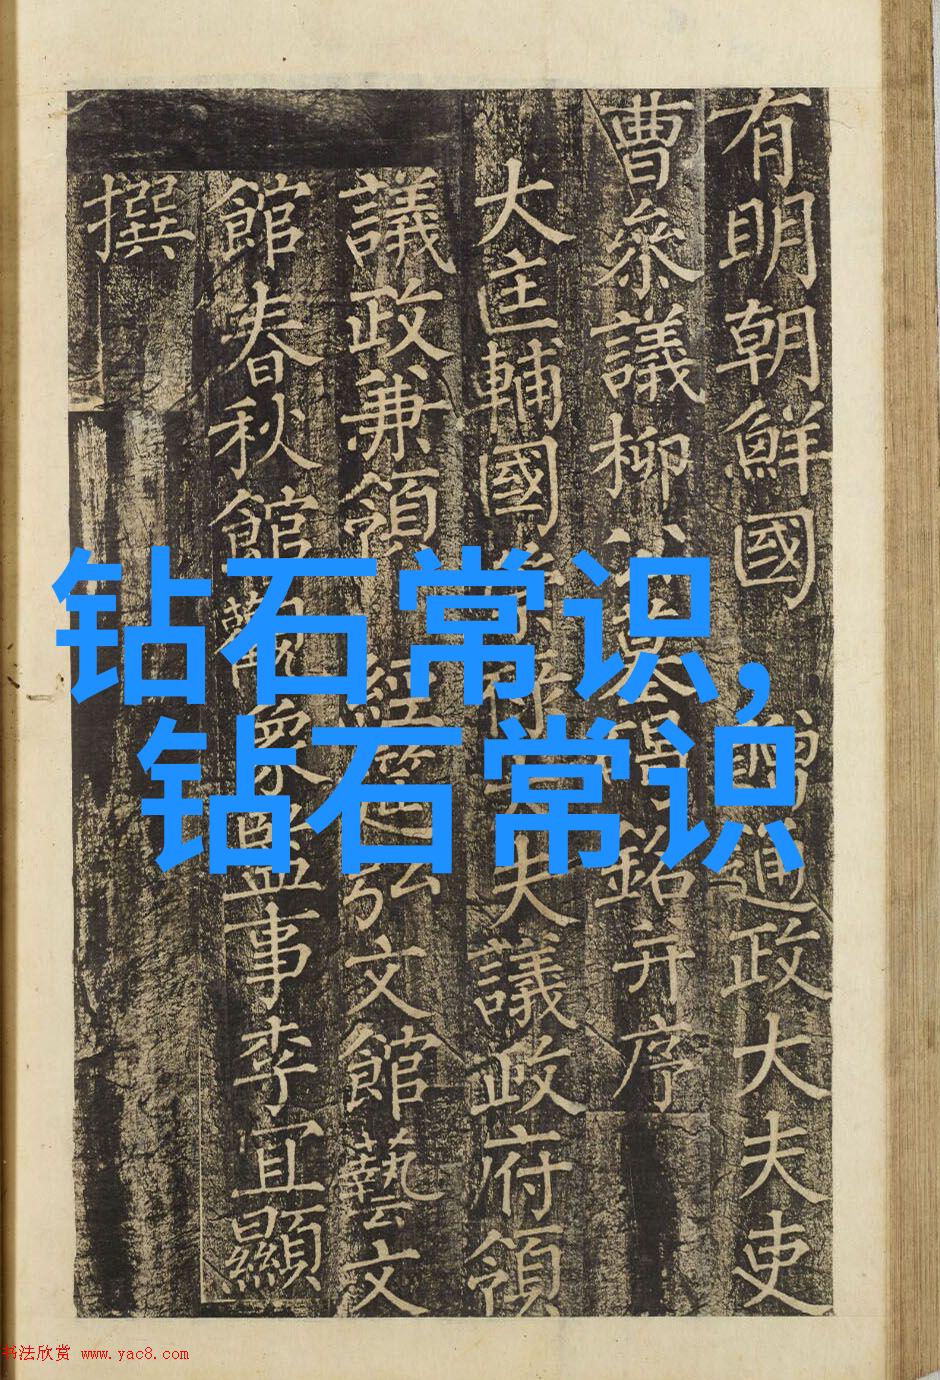 有明朝鮮國 贈通政大夫吏
曹叅議柳公墓碣銘并序
大匡輔國崇祿大夫議政府領
議政兼領 經筵弘文館藝文
館春秋館觀象監事李宜顯
撰
钻石常识,
钻石常识
书法欣赏 www.yac8.com